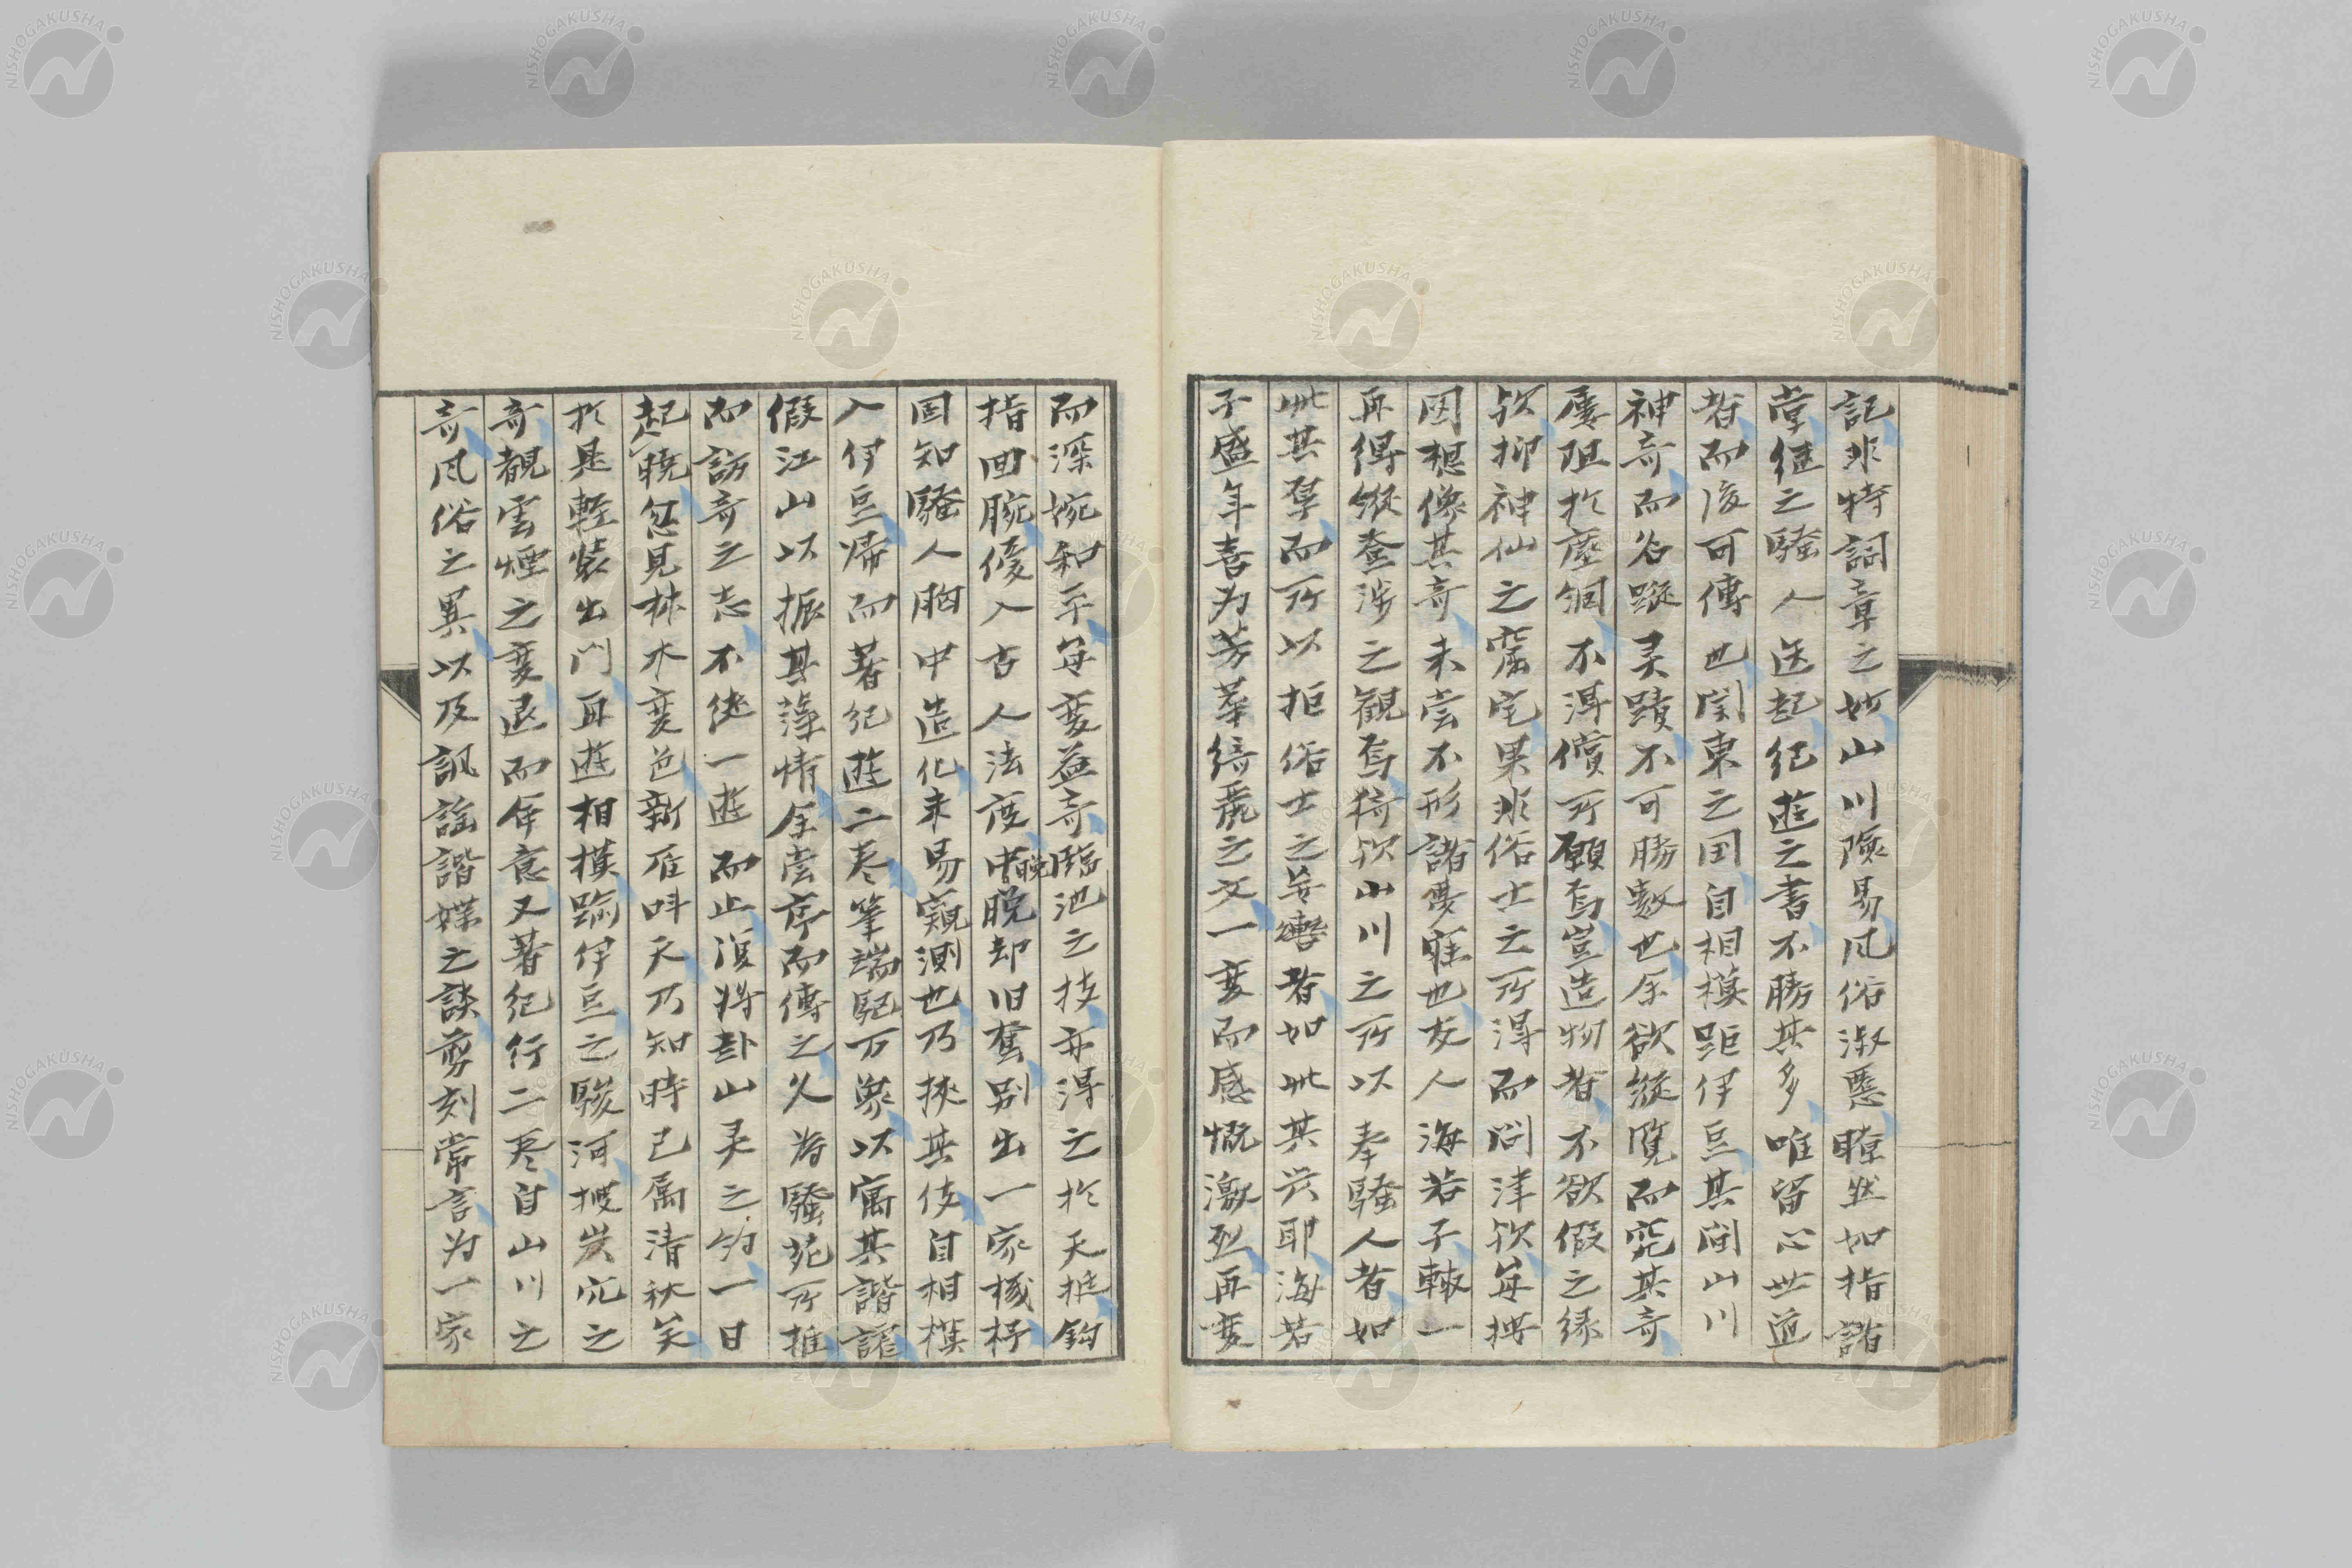 記非特詞章之妙山川険易風俗淑慝瞭然如指諸
掌継之騒人迭起紀遊之書不勝其多唯留心世道
者而後可傳也関東之国自相模距伊豆其間山川
神奇而名蹤灵蹟不可勝数也余欲縦覧而究其奇
屡阻於塵錮不得償所願焉豈造物者不欲假之縁
欤抑神仙之窟宅果非俗士之所得而問津欤每
因想像其奇未尝不形諸夢寐也友人海若子轍一
再得縦登渉之観焉猗欤山川之所以奉騒人者如
此其厚而所以拒俗士之若此其
子盛年喜为芳華綺麗之文一変而感慨激烈再変
而深婉和平每変益奇臨池之技亦得之於天
指回腕優入古人法度中晩脱却旧套別出一家機杼
固知騒人胸中造化未易窺測也乃挟其伎自相模
入伊豆帰而著紀遊二巻筆端駆万象以寓其諧謔
假江山以振其藻情余尝序而傳之久为騒苑所推
而訪奇之志不継一遊而止復将卦山灵之約一日
起暁忽見林水変色新雁叫天乃知時已属清秋矣
於是軽装出門再遊相模踰伊豆之駿河
奇観雲煙之変退而原意又著紀行二巻自山川之
奇風俗之異以及訊謡諧媟之談剪刻常言为一家